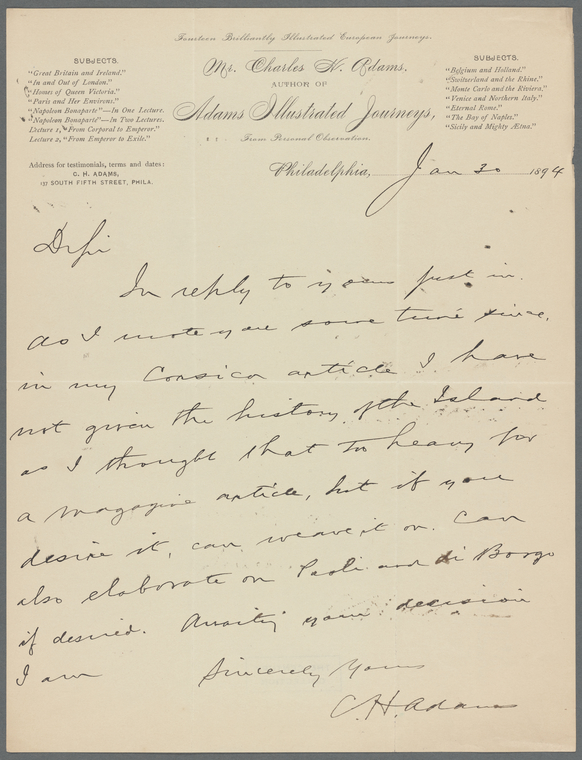 Fourteen Brilliantly Illustrated European Journeys.
Mr. Charles H. Adams,
AUTHOR OF
Adams Illustrated Journeys,
From Personal Observation.
SUBJECTS.
"Great Britain and Ireland."
"In and Out of London."
"Homes of Queen Victoria."
"Paris and Her Environs."
"Napoleon Bonaparte"—In One Lecture.
"Napoleon Bonaparte"—In Two Lectures.
Lecture 1, "From Corporal to Emperor."
Lecture 2, "From Emperor to Exile."
Address for testimonials, terms and dates:
C. H. ADAMS,
137 SOUTH FIFTH STREET, PHILA.
SUBJECTS.
"Belgium and Holland."
"Switzerland and the Rhine."
"Monte Carlo and the Riviera."
"Venice and Northern Italy."
"Eternal Rome."
"The Bay of Naples."
"Sicily and Mighty Ætna."
Philadelphia, Jan 30 1894
Dr Sir
In reply to yours just in.
As I wrote you some time since,
in my Corsica article I have
not given the history of the Island
as I thought that too heavy for
a magazine article, but if you
desire it, can weave it on. Can
also elaborate on Paoli and di Borgo
if desired. Awaiting your decision
I am Sincerely Yours
C. H. Adams